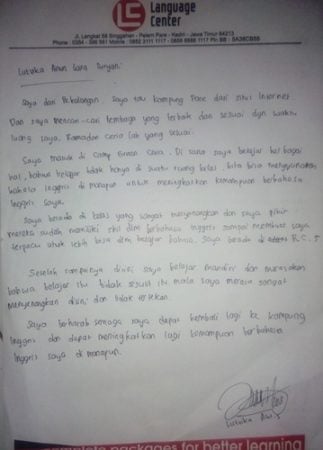 LC
Language
Center
Jl. Langkat 88 Singgahan - Pelem Pare - Kediri - Jawa Timur 64213
Saya dari Pekalongan. Saya tau kampung Pare dari situs Internet
Dan saya mencari-cari lembaga yang terbaik dan sesuai dgn waktu
luang saya. Ramadan ceria lah yang sesuai.
Saya masuk di Camp Green Cera. Di sana saya belajar berbagai
hal, bahwa belajar tidak hanya di suatu ruang kelas. Kita bisa menggunakan
bahasa Inggris di manapun untuk meningkatkan kemampuan berbahasa
Inggris saya.
Saya berada di kelas yang sangat menyenangkan dan saya pikir
mereka sudah memiliki skil dlm berbahasa Inggris sampai membuat saya
terpacu untuk lebih bisa dlm belajar bahasa. Saya berada di R.C. 5
Setelah sampainya disini saya belajar mandiri dan merasakan
bahwa belajar itu tidak sesulit itu maka saya merasa sangat
menyenangkan disini dan tidak tertekan.
Saya berharap semoga saya dapat kembali lagi ke kampung
Inggris dan dapat meningkatkan lagi kemampuan berbahasa
Inggris saya di manapun.
complete packages for better learning